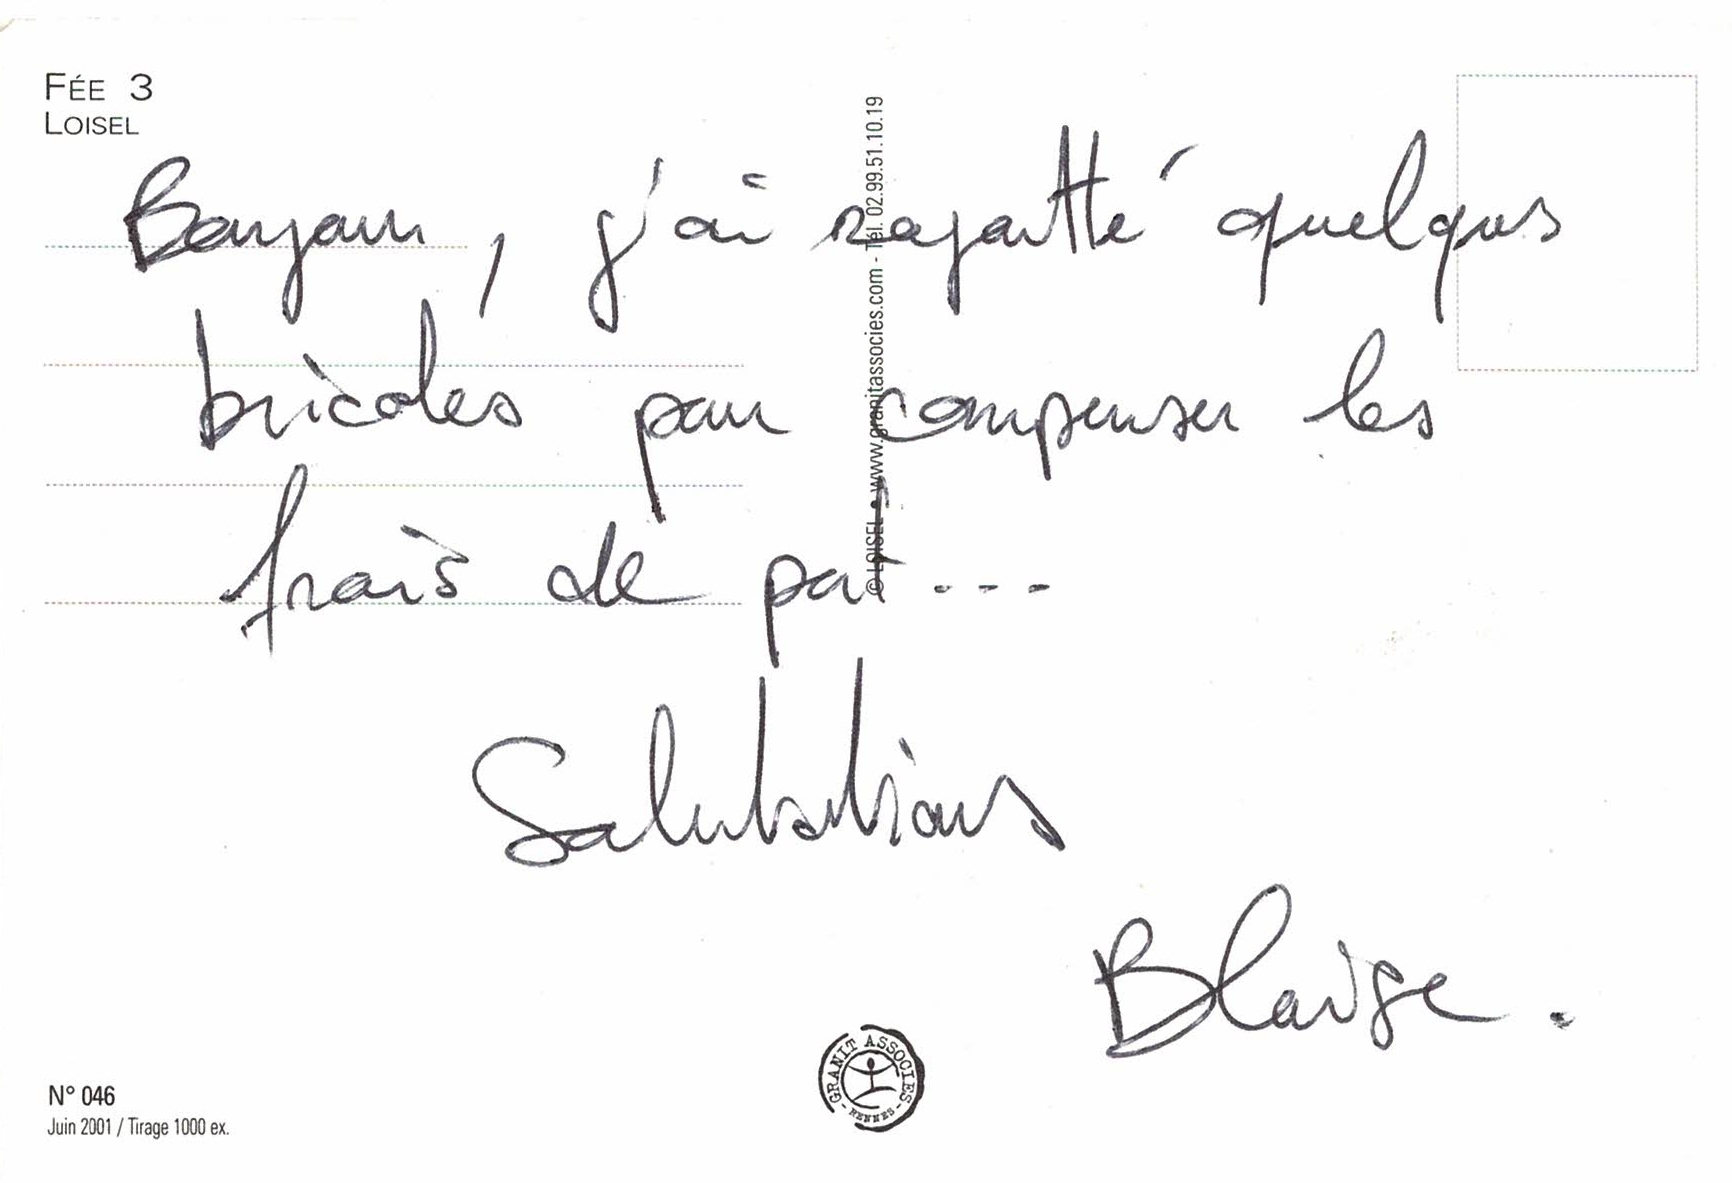 FÉE 3
LOISEL
Bonjour, j'ai rajoutté quelques
bricoles pour compenser les
frais de port...
Salutations
Blaise.
© LOISEL • www.granitassocies.com - Tél. 02.99.51.10.19
GRANIT ASSOCIES
- RENNES -
N° 046
Juin 2001 / Tirage 1000 ex.